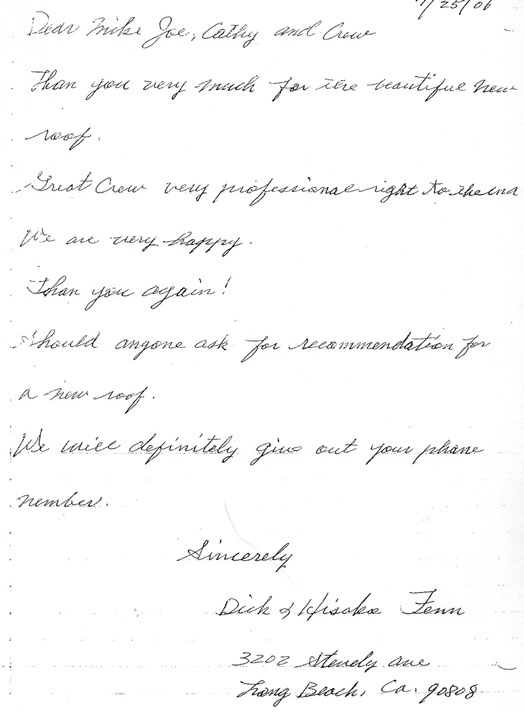 7/25/06
Dear Mike Joe, Cathy and Crew
Than you very much for the beautiful new
roof.
Great Crew very professional right to the end
We are very happy.
Than you again!
Should anyone ask for recommendation for
a new roof.
We will definitely give out your phone
nember.
Sincerely
Dick & Hisako Fenn
3202 ave
Long Beach, Ca. 90808